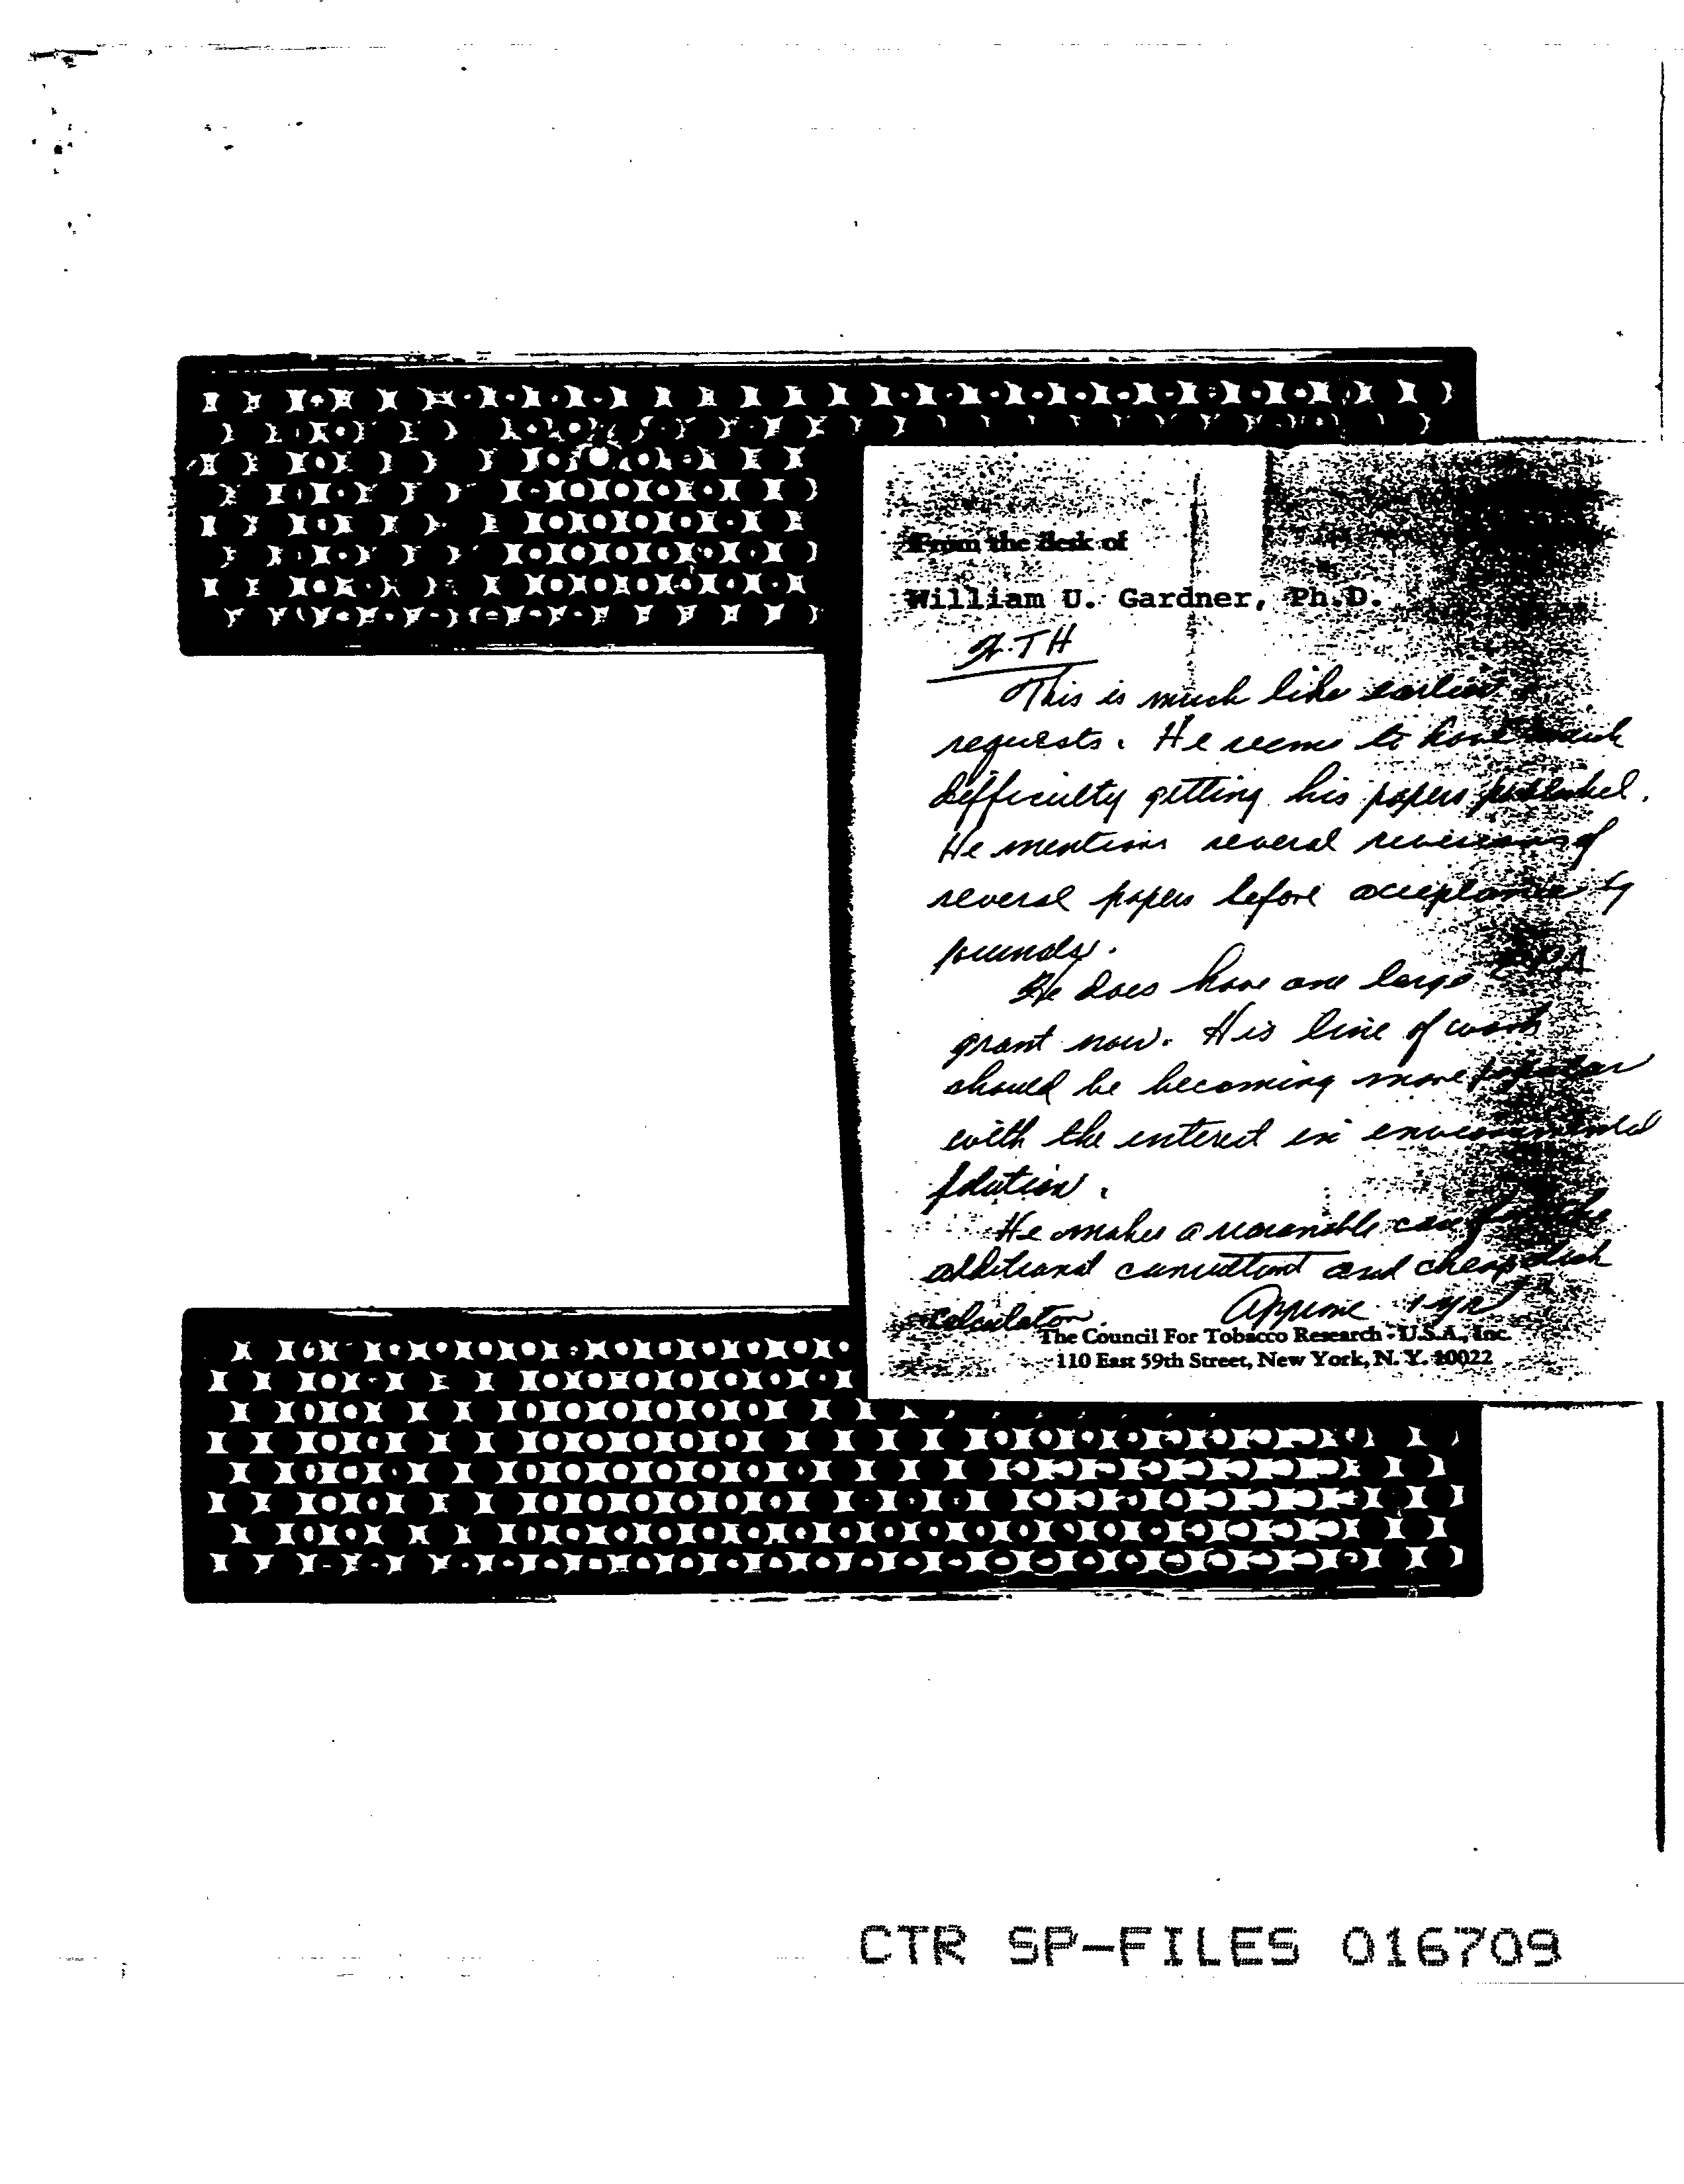 From the desk of
William U. Gardner, Ph.D.
This is much like earlier
requests. He seems to have much
difficulty getting his papers published.
He mentions several revisions of
several papers before acceptance by
journals.
He does have one large EPA
grant now. His line of work
should be becoming more popular
with the interest in environmental
polution.
He makes a reasonable case for the
additional consultant and cheap desk
calculator. Approve 1 yr
The Council For Tobacco Research - U.S.A., Inc.
110 East 59th Street, New York, N. Y. 10022
CTR SP-FILES 016709